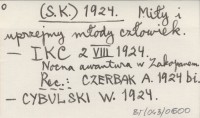 (S.K.) 1924. Miły i
uprzejmy młody człowiek.
- IKC 2 VIII 1924.
Nocna awantura w Zakopanem
Rec.: CZERBAK A. 1924 bi.
- CYBULSKI W. 1924.
BI/043/0500